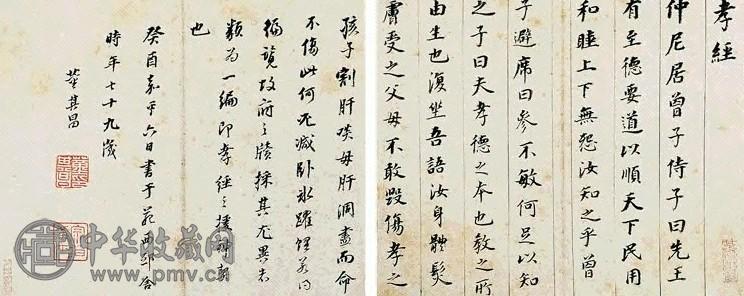 孝經
仲尼居曾子侍子曰先王
有至德要道以順天下民用
和睦上下無怨汝知之乎曾
子避席曰參不敏何足以知
之子曰夫孝德之本也教之所
由生也復坐吾語汝身體髮
膚受之父母不敢毀傷孝之
孩子割肝啖母肝洞盡而命
不傷此何減卧冰躍
徧覽故府之牘採其尤異者
類為一編即孝經之援神契
也
癸酉嘉平六日書于苑西邸舍
時年七十九歲
董其昌
中华收藏网
www.pmv.cn